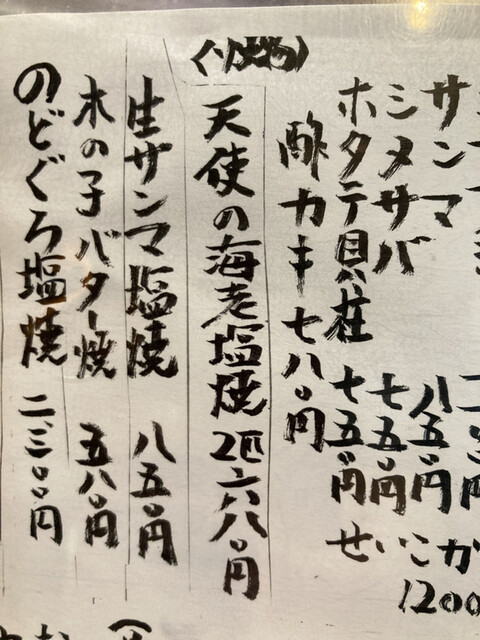 サンマ 八五〇円
シメサバ 七五〇円
ホタテ貝柱 七五〇円
せいこか
1200
酢カキ 七八〇円
天使の海老塩焼 2匹六八〇円
生サンマ塩焼 八五〇円
木の子バター焼 五八〇円
のどぐろ塩焼 二、三〇〇円